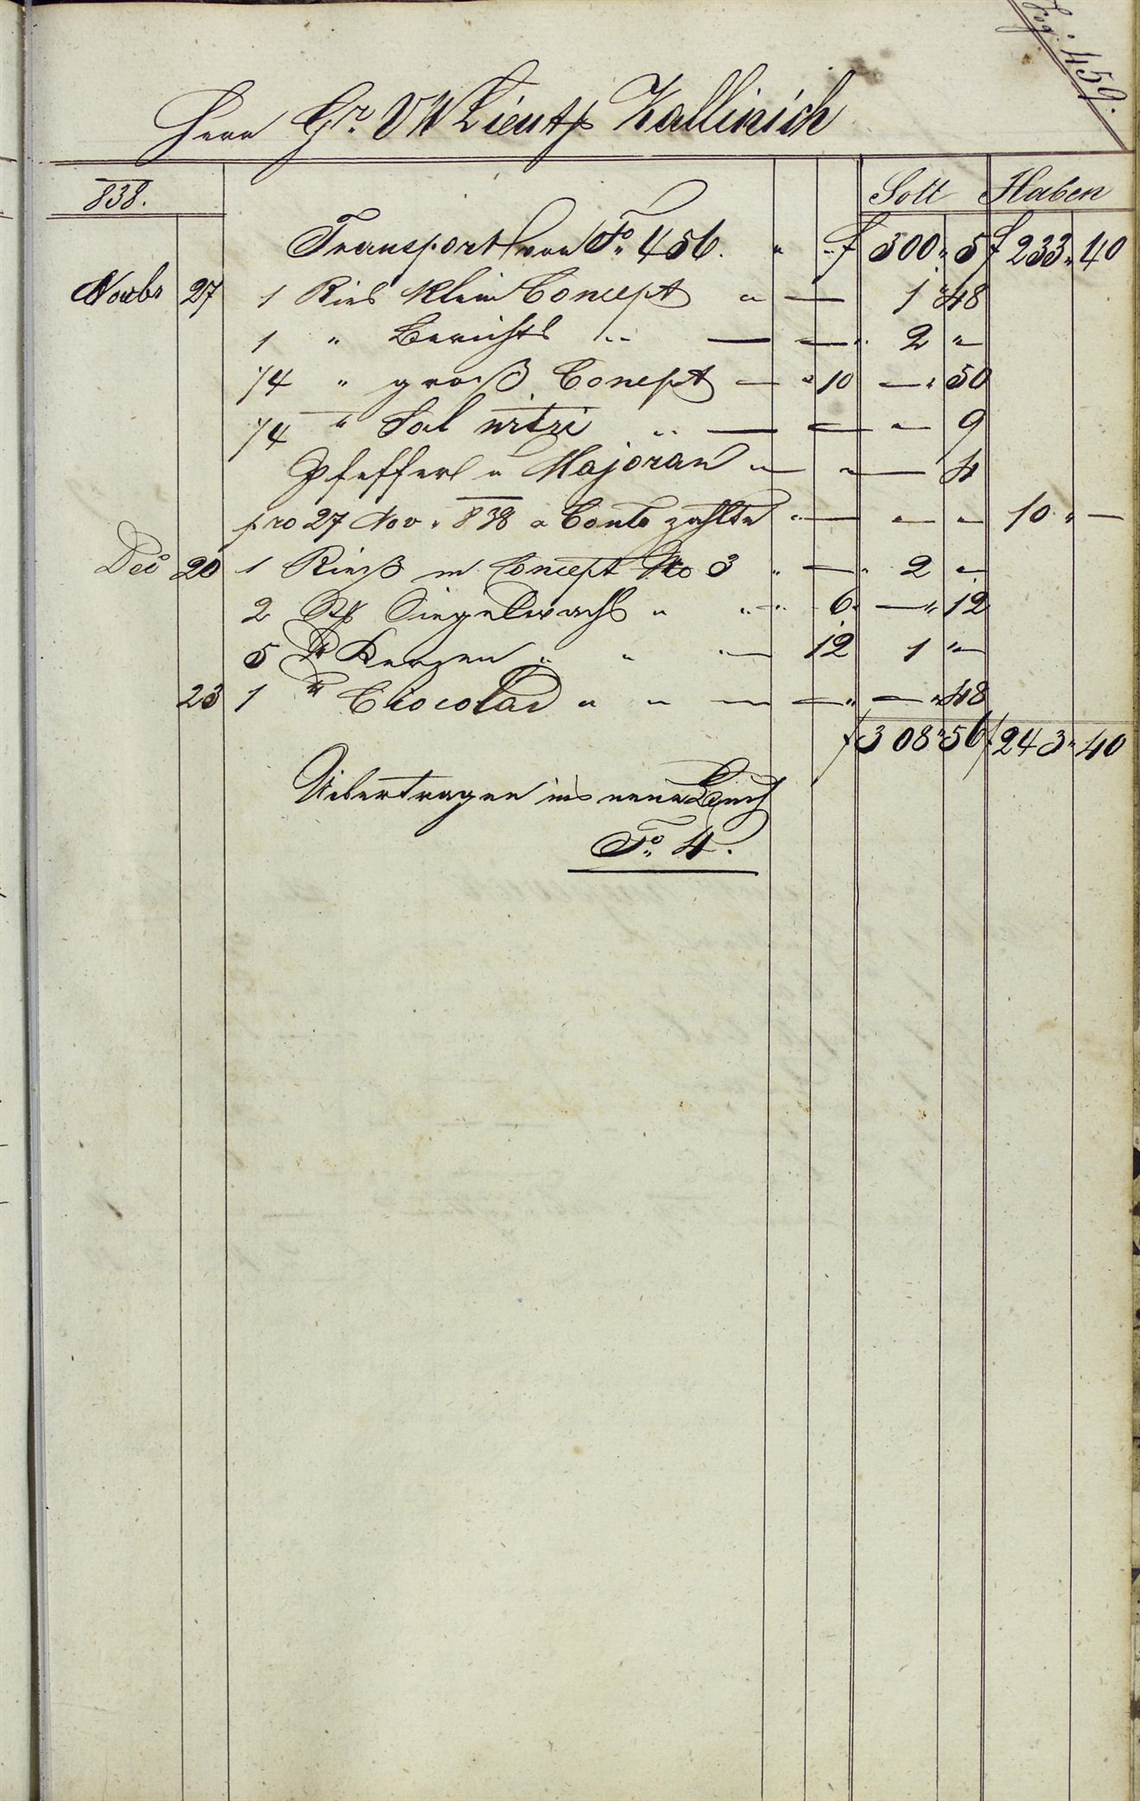 Fog: 459.
Herr Gr. V W Lieut Kallinich
838.
Soll Haben
Transport von Fo. 456. " " f 300 " 5 f 233 " 40
Novbr 27 1 Ries Klein Concept " — 1 " 48
1 " Berichts " — — " 2 "
1/4 " groß Concept — " 10 — " 50
1/4 " Sal nitri " — — — 9
Pfeffer u Majoran " — " — 4
pro 27 Nov. 838 a Conto zahlte " — — " 10 " —
Dec 20 1 Rieß m Concept No 3 " — " 2 "
2 Siegelwachs " " — " 6 " — " 12
5 ℔ Kerzen " " — 12 1 "
23 1 ℔ Chocolad " " — — " — " 48
f 308 " 56 f 243 " 40
Uibertragen ins neue Buch
Fo. 4.